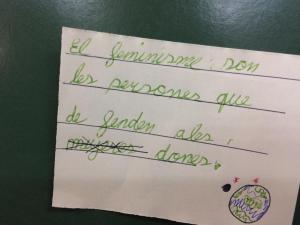 El feminisme: són
les persones que
de fenden ales
dones.